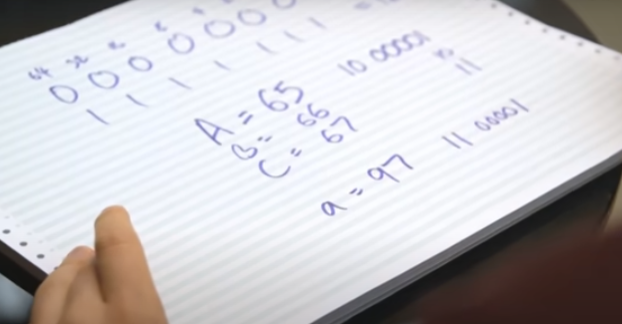 64 32
0 0 0 0 0 0 0
1 1 1 1 1 1 1
A = 65 10 00001
B = 66 10
C = 67 11
a = 97 11 00001